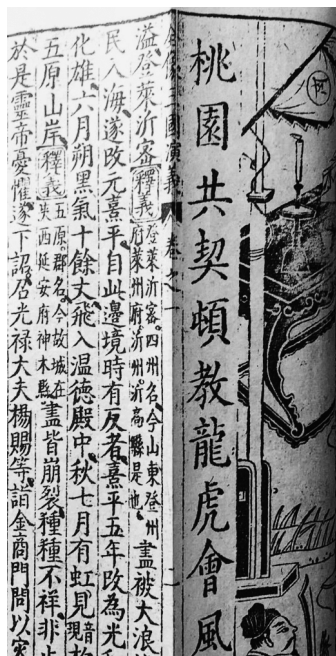 桃園共契頓教龍虎會風
三國演義 卷之一 二
溢登萊沂密釋義登萊沂密四州名今山東登州府萊州府沂州沂高縣是也盡被大浪
民入海遂改元熹平自此邊境時有反者熹平五年改為光
化雄六月朔黑氣十餘丈飛入温德殿中秋七月有虹見音現
五原山岸釋義五原郡名今故城在陝西延安府神木縣盡皆崩裂種種不祥非
於是靈帝憂懼遂下詔召光禄大夫楊賜等詣金商門問以